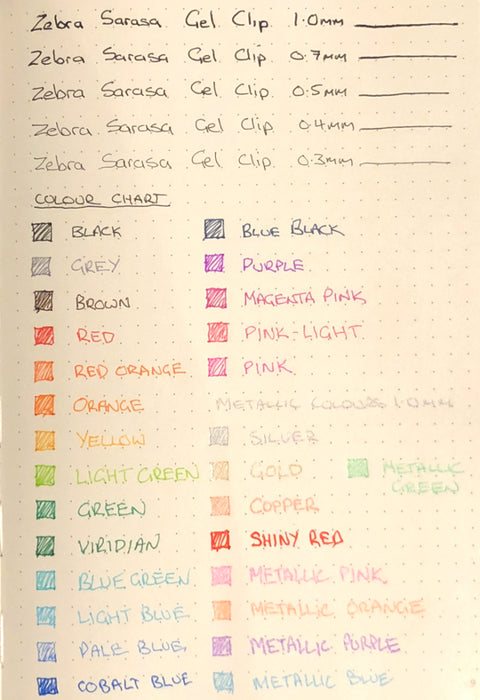 Zebra Sarasa Gel Clip 1.0mm
Zebra Sarasa Gel Clip 0.7mm
Zebra Sarasa Gel Clip 0.5mm
Zebra Sarasa Gel Clip 0.4mm
Zebra Sarasa Gel Clip 0.3mm
COLOUR CHART
BLACK
GREY
BROWN
RED
RED ORANGE
ORANGE
YELLOW
LIGHT GREEN
GREEN
VIRIDIAN
BLUE GREEN
LIGHT BLUE
PALE BLUE
COBALT BLUE
BLUE BLACK
PURPLE
MAGENTA PINK
PINK-LIGHT
PINK
METALLIC COLOURS 1.0MM
SILVER
GOLD
COPPER
SHINY RED
METALLIC PINK
METALLIC ORANGE
METALLIC PURPLE
METALLIC BLUE
METALLIC
GREEN